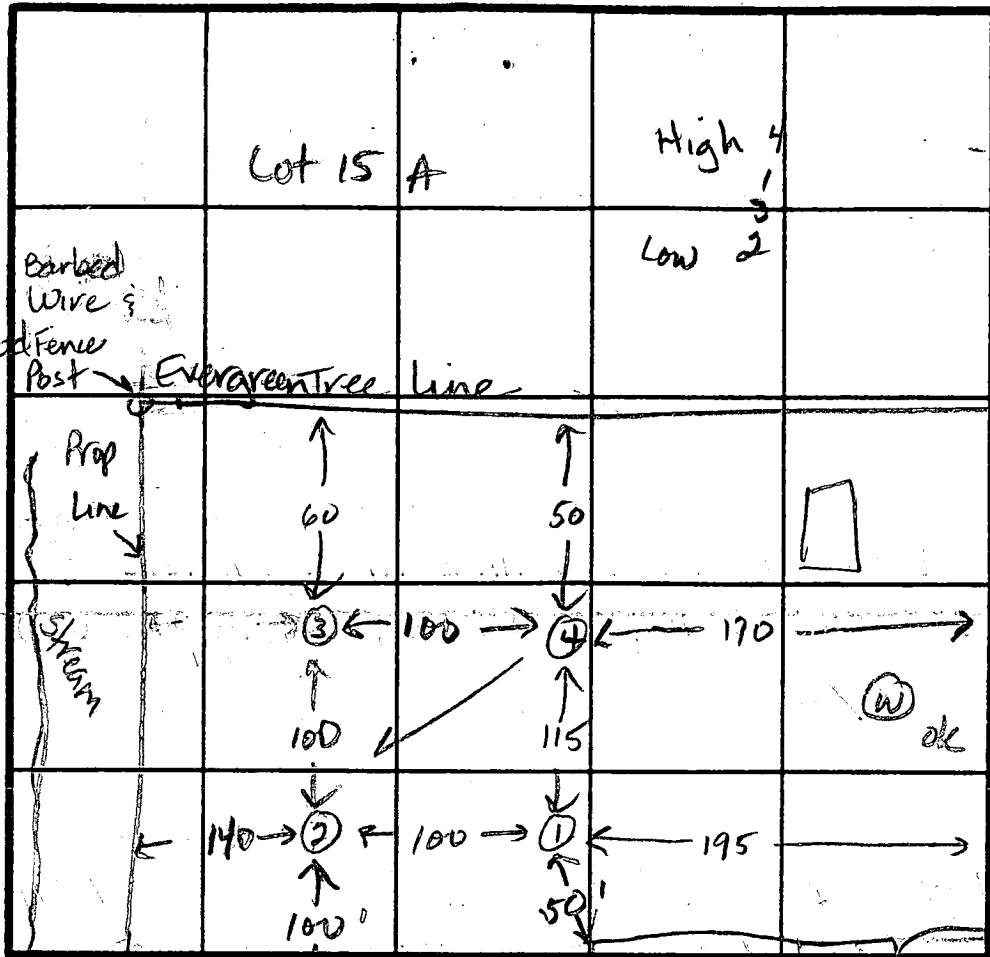 Lot 15 A
High 4
1
3
Low 2
Barbed
Wire &
Fence
Post
Evergreen Tree Line
Prop
Line
60
50
Stream
3
100
4
170
W
ok
100
115
140
2
100
1
195
100'
50'